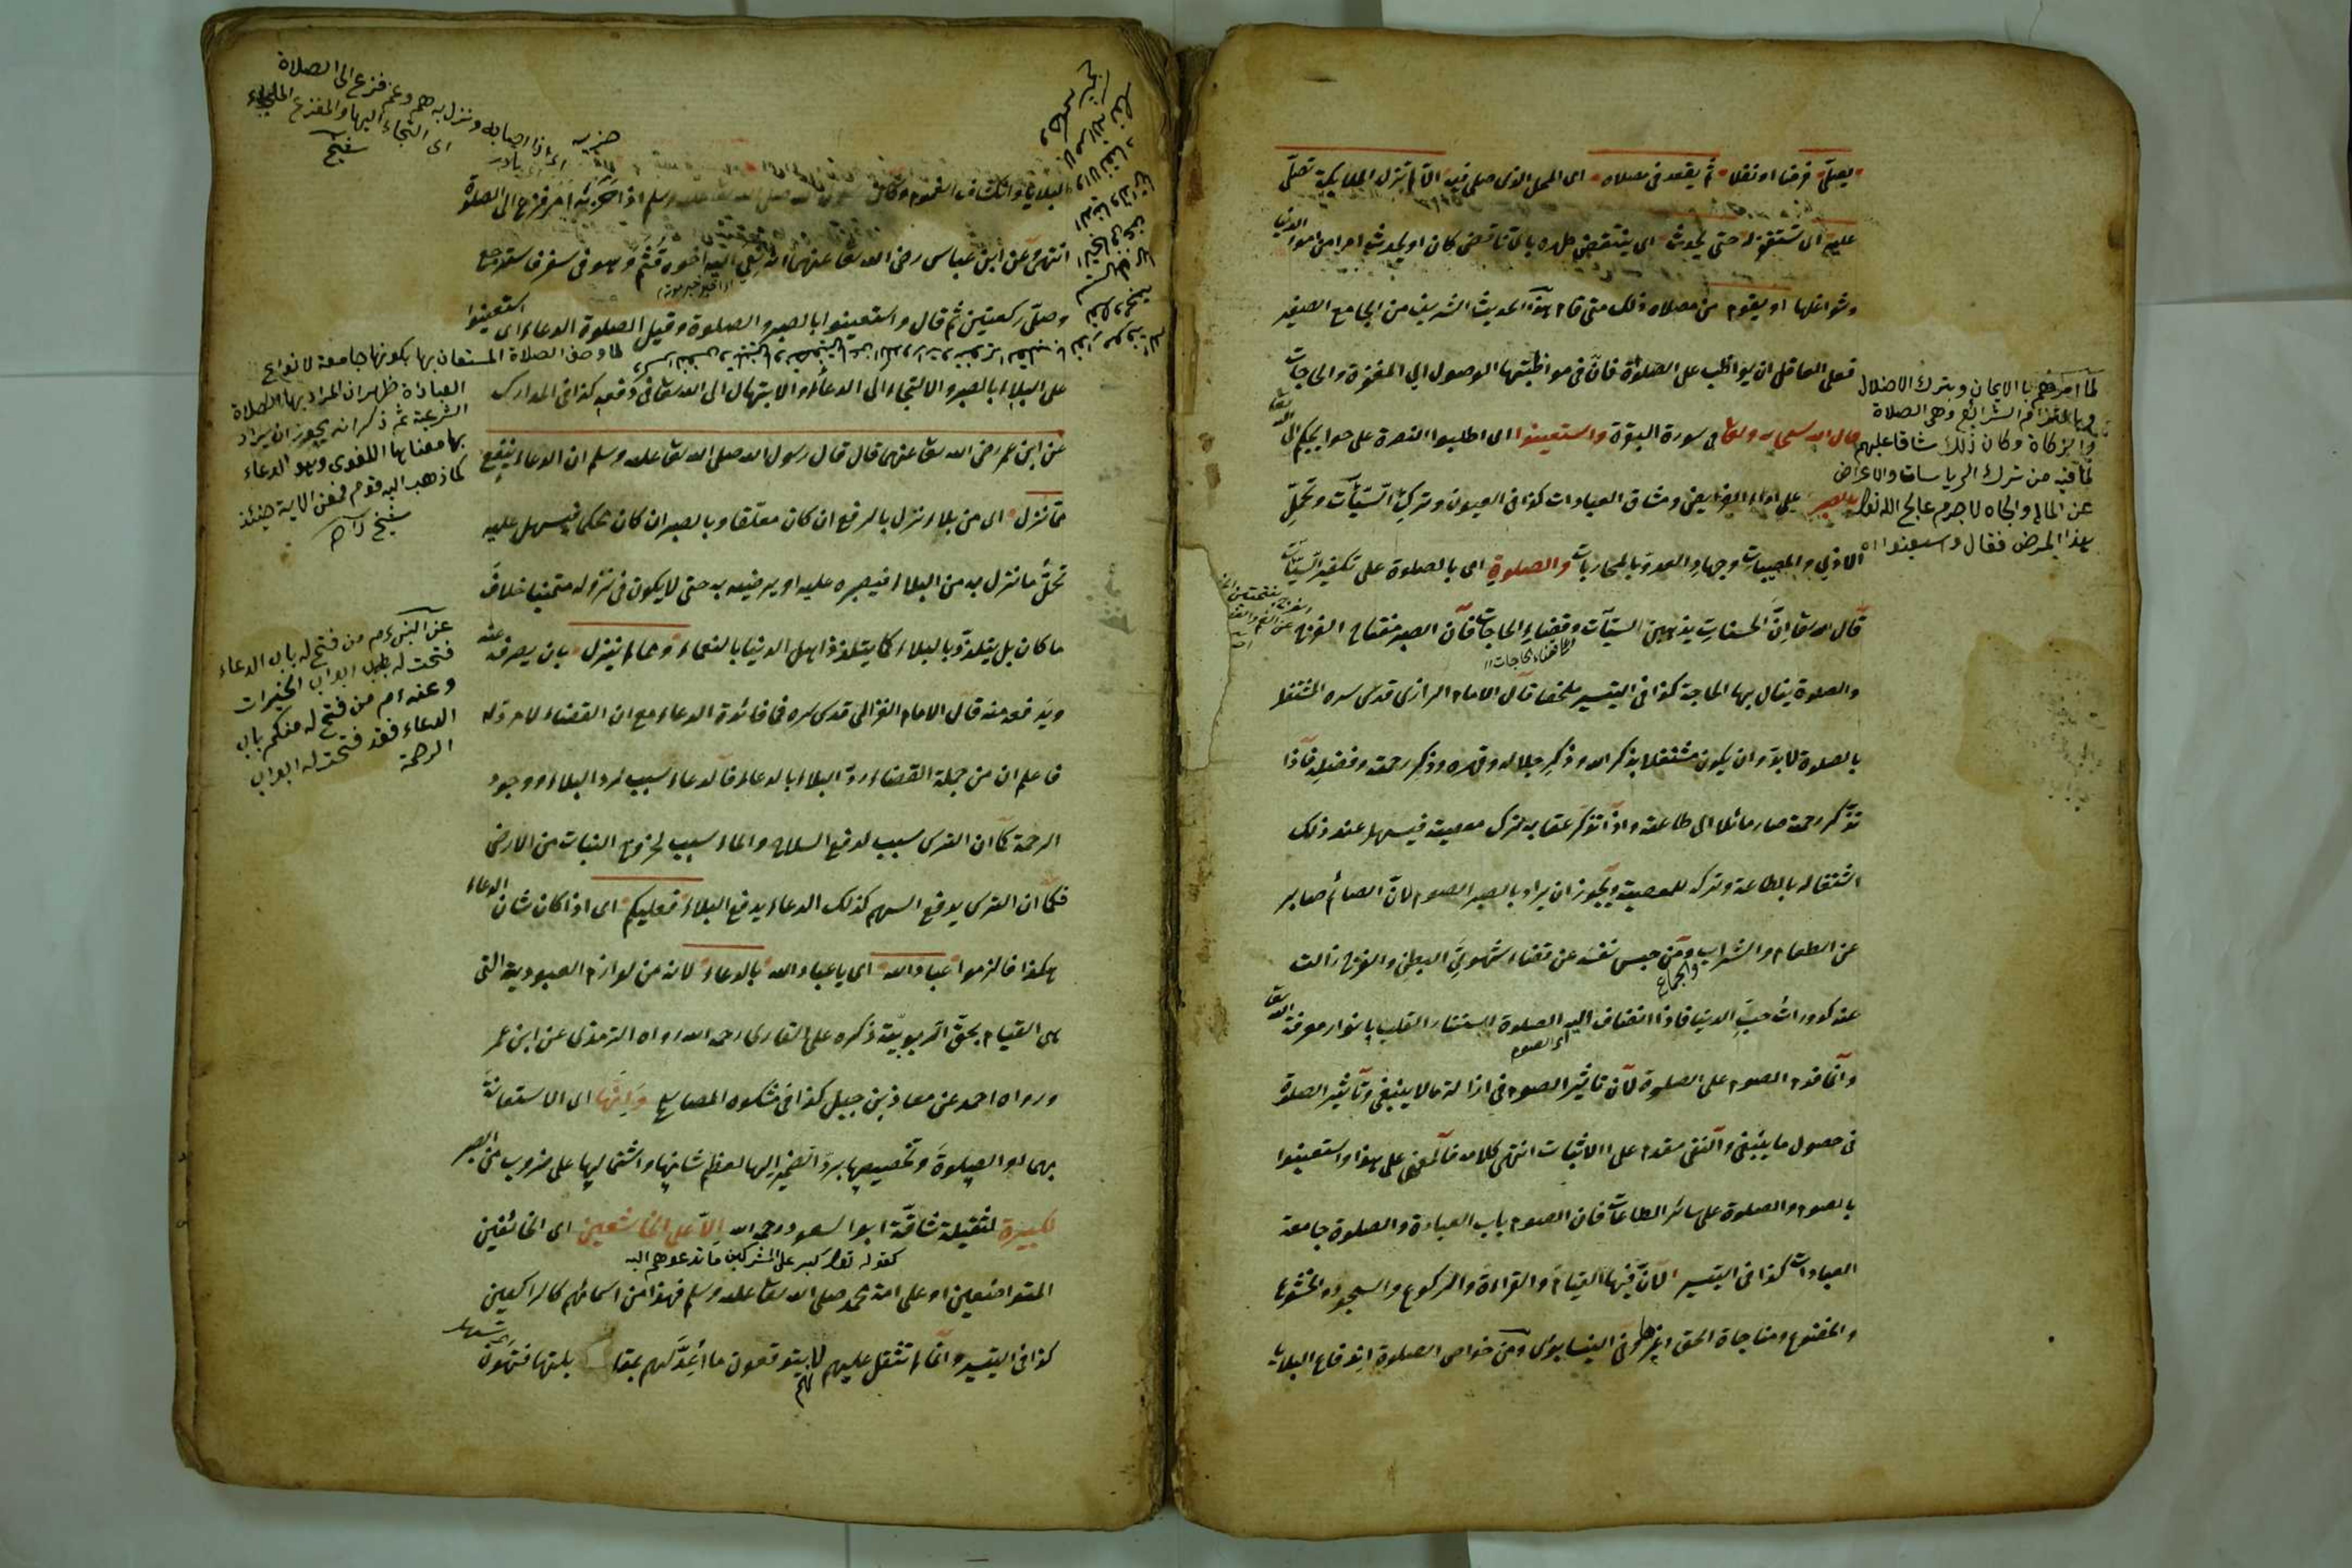 يصلى فرضا او نفلا ثم يقعد في مصلاه اى المحل الذى صلى فيه الا لم تزل الملايكة تصلى
عليه اى تستغفر له حتى يحدث اى ينتقض طهره باى ناقض كان او يحدث امرا من امور الدنيا
وشواغلها او يقوم من مصلاه ذلك متى قام هذا الحديث الشريف من الجامع الصغير
فعلى العاقل ان يواظب على الصلوة فان في مواظبتها الوصول الى المغفرة والحاجات
قال الله سبحانه وتعالى في سورة البقرة واستعينوا اى اطلبوا النصرة على حوايجكم الى الله تعالى
بالصبر على اداء الفرايض ومشاق العبادات كذا في العيون وترك السيّآت وتحمّل
الاذى والمصيبات وجهاد العدو بالمحاربات والصلوة اى بالصلوة على تكفير السيّآت
قال الله تعالى انّ الحسنات يذهبن السيّآت وقضاء الحاجات فان الصبر مفتاح الفرج
والصلوة ينال بها الحاجة كذا في التيسير ملخصا قال الامام الرازى قدس سره المشتغل
بالصلوة لابدّ وان يكون مشتغلا بذكر الله وذكر جلاله وقهره وذكر رحمته وفضله فاذا
تذكر رحمته صار مائلا الى طاعته واذا تذكر عقابه ترك معصيته فيسهل عند ذلك
اشتغاله بالطاعة وتركه للمعصية ويجوز ان يراد بالصبر الصوم لانّ الصائم صابر
عن الطعام والشراب والجماع ومن حبس نفسه عن قضاء شهوتى البطن والفرج زالت
عنه كدورات حبّ الدنيا فاذا انضاف اليه اى الصوم الصلوة استنار القلب بانوار معرفة الله تعالى
وانما قدم الصوم على الصلوة لان تاثير الصوم في ازالة ما لا ينبغى وتاثير الصلوة
في حصول ما ينبغى والنفى مقدم على الاثبات انتهى كلامه فالمعنى على هذا واستعينوا
بالصوم والصلوة على سائر الطاعات فان الصوم باب العبادة والصلوة جامعة
العبادات كذا في التيسير لانّ فيها القيام والقراءة والركوع والسجود والخشوع
والخضوع ومناجاة الحق وغيرها وفى النيسابورى ومن خواص الصلوة اندفاع البلايا
لما امرهم بالايمان وبترك الاضلال
وبالتزام الشرائع وهى الصلاة
والزكاة وكان ذلك شاقا عليهم
لما فيه من ترك الرياسات والاعراض
عن المال والجاه لا جرم عالج الله تعالى
هذا المرض فقال واستعينوا
البلايا وانكشاف الغموم وكان رسول الله صلى الله تعالى عليه وسلم اذا حزبه امر فزع الى الصلوة
انتهى وعن ابن عباس رضى الله تعالى عنهما انه نعى اليه اخوه قثم وهو في سفر فاسترجع
وصلى ركعتين ثم قال واستعينوا بالصبر والصلوة وقيل الصلوة الدعاء اى استعينوا
على البلاء بالصبر والالتجاء الى الدعاء والابتهال الى الله تعالى في دفعه كذا في المدارك
عن ابن عمر رضى الله تعالى عنهما قال قال رسول الله صلى الله تعالى عليه وسلم ان الدعاء ينفع
ممّا نزل اى من بلاء نزل بالرفع ان كان معلقا وبالصبر ان كان محكما فيسهل عليه
تحمّل ما نزل به من البلاء فيصبره عليه او يرضيه به حتى لا يكون في نزوله متمنيا خلاف
ما كان بل يتلذذ بالبلاء كما يتلذذ اهل الدنيا بالنعماء وممّا لم ينزل بان يصرفه عنه
ويدفعه منه قال الامام الغزالى قدس سره في فائدة الدعاء مع ان القضاء لا مردّ له
فاعلم ان من جملة القضاء ردّ البلاء بالدعاء فالدعاء سبب لرد البلاء ووجود
الرحمة كما ان الترس سبب لدفع السلاح والماء سبب لخروج النبات من الارض
فكما ان الترس يدفع السهم كذلك الدعاء يدفع البلاء فعليكم اى اذا كان شان الدعاء
هكذا فالزموا عباد الله اى يا عباد الله بالدعاء لانه من لوازم العبودية التى
هى القيام بحقّ الربوبيّة ذكره على القارى رحمه الله رواه الترمذى عن ابن عمر
ورواه احمد عن معاذ بن جبل كذا في مشكوة المصابيح وانّها اى الاستعانة
بهما او الصلوة وتخصيصها بردّ الضمير اليها لعظم شانها واشتمالها على ضروب من الصبر
لكبيرة لثقيلة شاقّة ابوالسعود رحمه الله الّا على الخاشعين اى الخائفين
كقوله تعالى كبر على المشركين ما تدعوهم اليه
المتواضعين او على امة محمد صلى الله تعالى عليه وسلم فهذا من اسمائهم كالراكعين
كذا في التيسير وانما لم تثقل عليهم لانهم يتوقعون ما اعدّ لهم بمقابلتها فتهون
حزبه اى اذا اصابه ونزل به هم وغم فزع الى الصلاة
اى التجاء اليها والمفزع الملجاء
شيخ
لما وصف الصلاة المستعان بها بكونها جامعة لانواع
العبادة ظهر ان المراد بها الصلاة
الشرعية ثم ذكر انه يجوز ان يراد
بها معناها اللغوى وهو الدعاء
كما ذهب اليه قوم فمعنى الاية حينئذ
شيخ زاده
من فتح له باب الدعاء
فتحت له ابواب الخيرات
وعنه ام من فتح له منكم باب
الدعاء فقد فتحت له ابواب
الرحمة